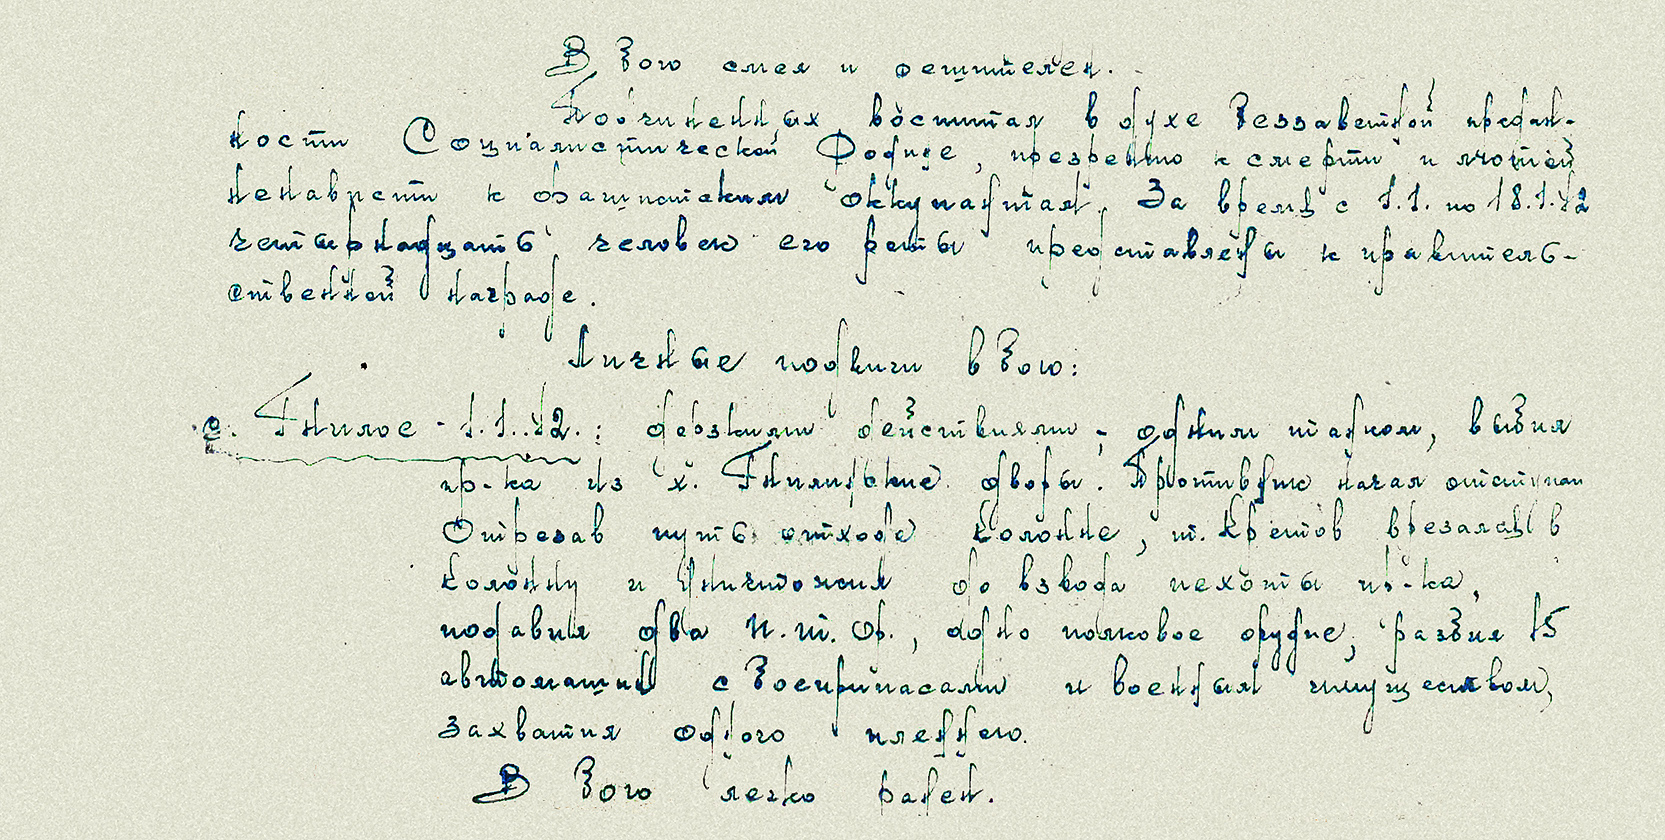 В бою смел и решителен.
Подчиненных воспитал в духе беззаветной предан-
ности Социалистической Родине, презрению к смерти и лютой
ненависти к фашистским оккупантам. За время с 1.1. по 18.1.42
четырнадцать человек его роты представлены к правитель-
ственной награде.
Личные подвиги в бою:
с. Гнилое - 1.1.42.: дерзкими действиями, одним танком, выбил
пр-ка из х. Гнилинские дворы. Противник начал отступал
Отрезав путь отхода колонне, т. Кретов врезался в
колонну и уничтожил до взвода пехоты пр-ка,
подавил два п.т. ор., одно полковое орудие, разбил 15
автомашин с боеприпасами и военным имуществом,
захватил одного пленного.
В бою легко ранен.